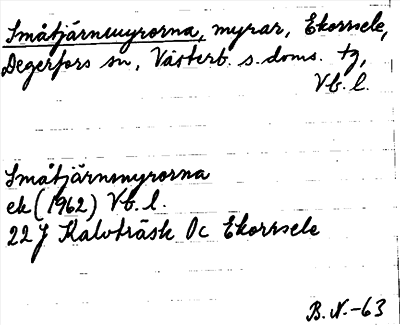 Småtjärnmyrorna, myrar, Ekorrsele,
Degerfors sn, Västerb. s. doms. tg,
Vb. l.
Småtjärnsmyrorna
ek (1962) Vb. l.
22 J Kalvträsk Oc Ekorrsele
B. N. -63